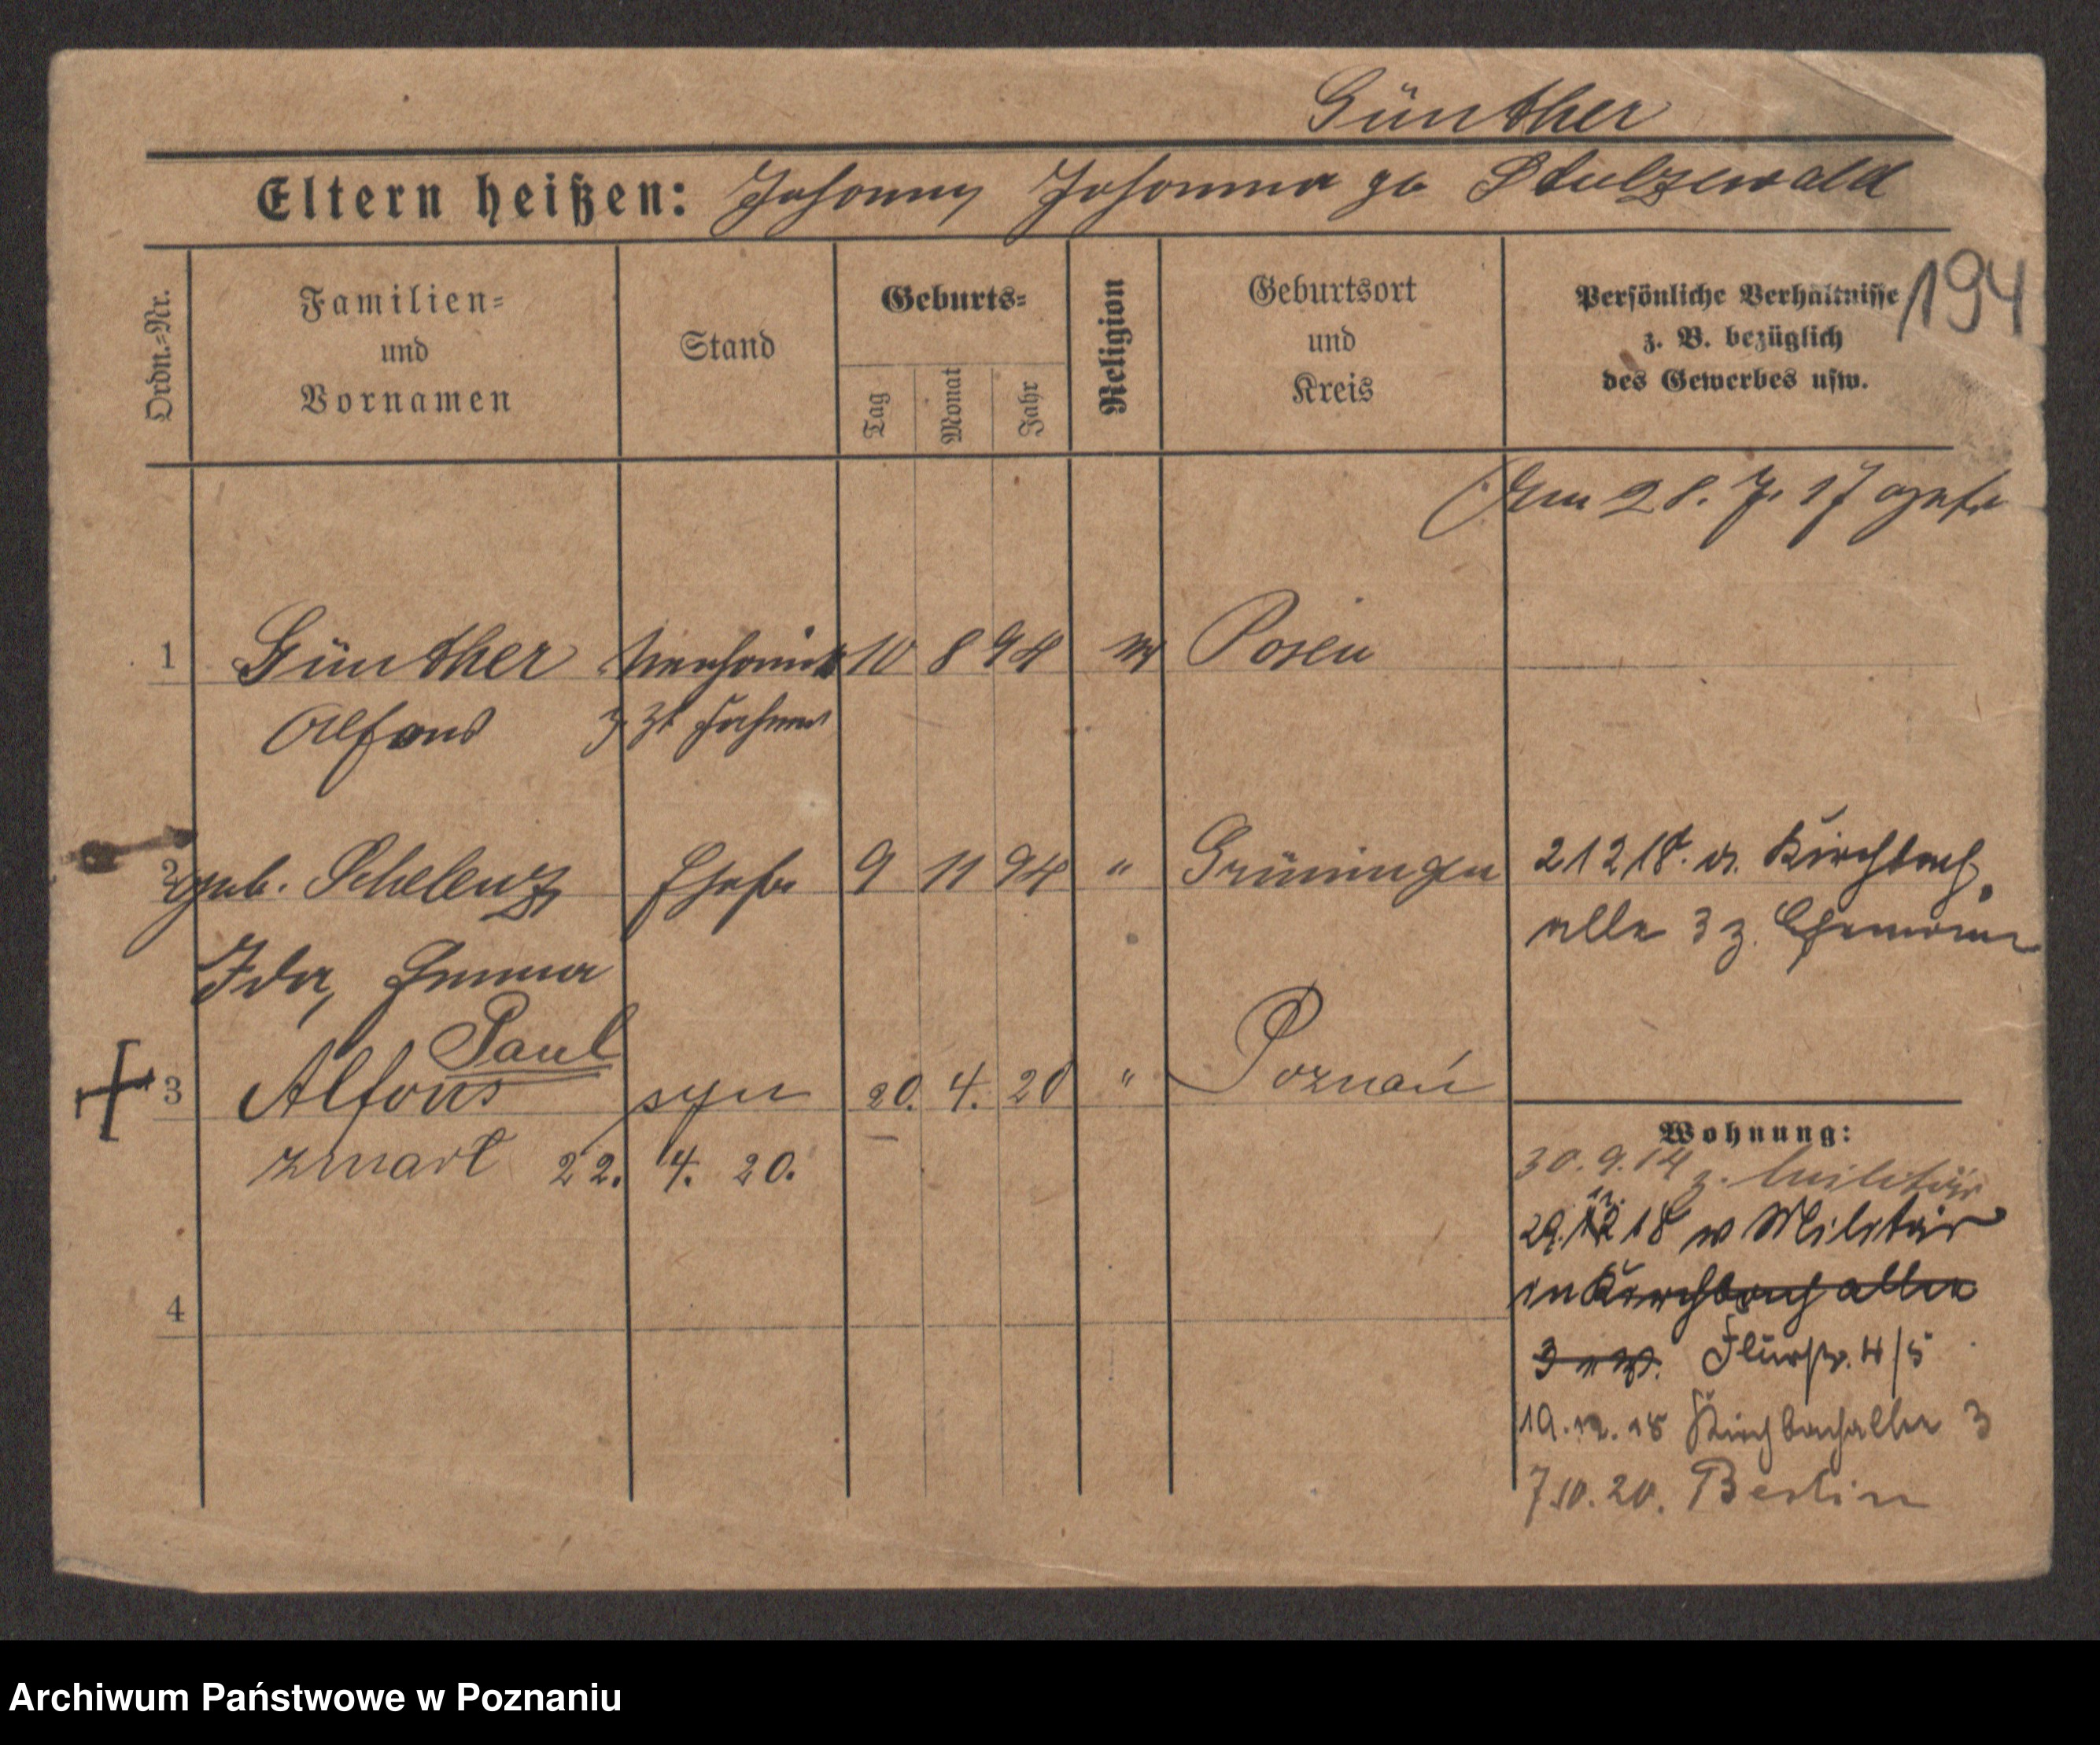 Günther
Eltern heißen: Johann Johanna gb Stulzewald
194
Ordn.-Nr.
Familien-
und
Vornamen
Stand
Geburts-
Tag Monat Jahr
Religion
Geburtsort
und
Kreis
Persönliche Verhältnisse
z. B. bezüglich
des Gewerbes usw.
Am 28. 7. 17
1 Günther 10 8 94 Posen
Alfons z. Zt
2 geb. Schelenz Ehefr 9 11 94 " Grüningen 21 2 18.
Ida, Emma alle 3 z.
Paul
3 Alfons syn 20. 4. 20 " Poznań
zmarł 22. 4. 20.
Wohnung:
30.9.14 z. Militär
29. 12 18 w Militär
in Kirchbachallee
3 Flurstr. 4/5
4
19.12.18 Kirchbachallee 3
7.10.20. Berlin
Archiwum Państwowe w Poznaniu